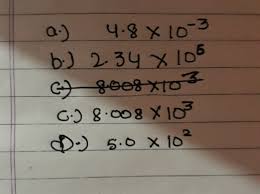 a.) 4.8 × 10⁻³
b.) 2.34 × 10⁵
c.) 8.008 × 10⁻³
c.) 8.008 × 10³
d.) 5.0 × 10²